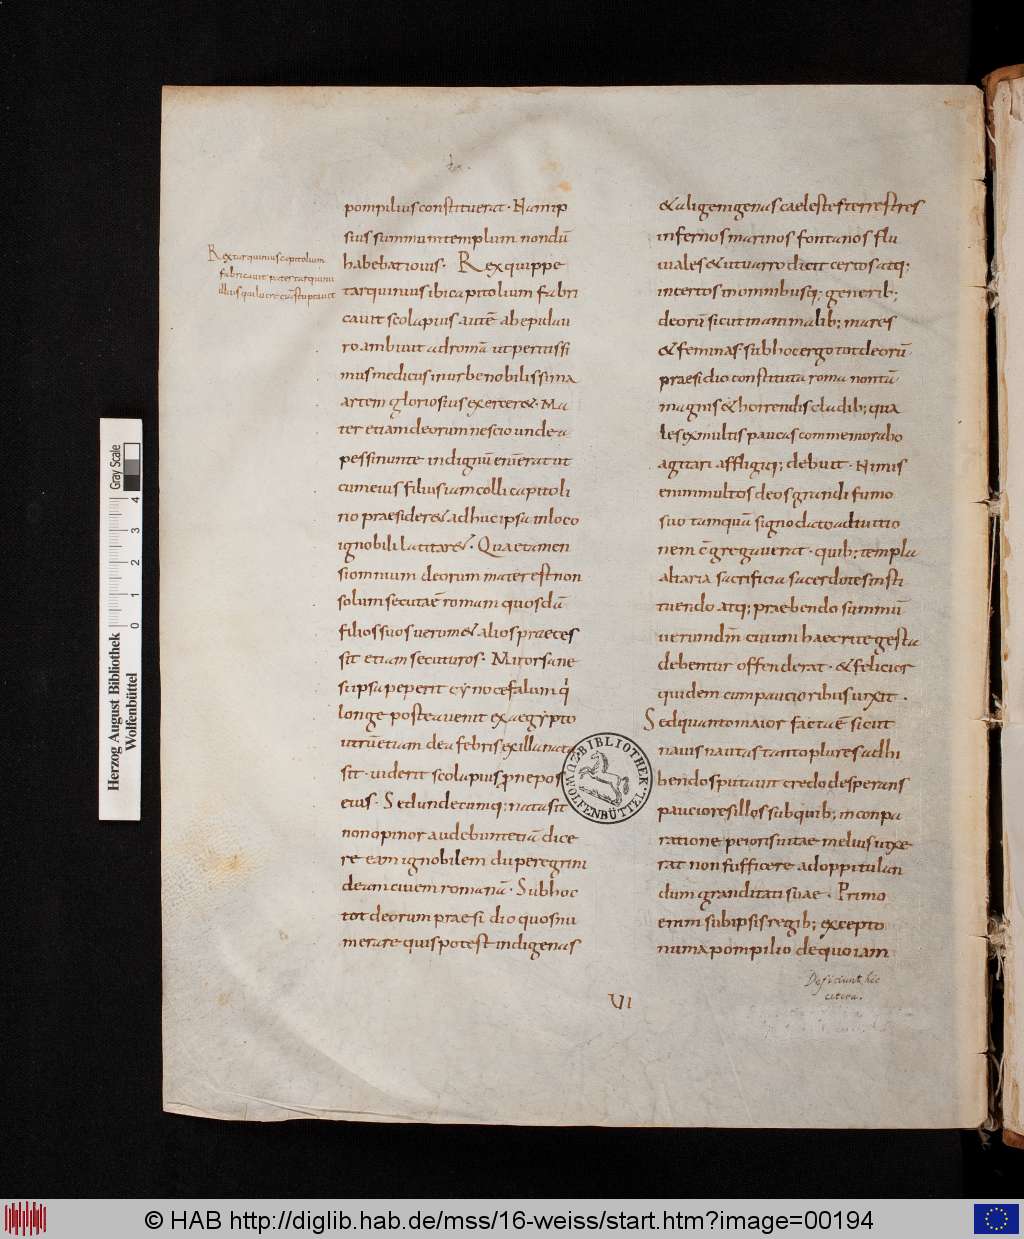 pompilius constituerat · Nam ip
sius summum templum nondū
habebat iouis · Rex quippe
tarquinius ibi capitolium fabri
cauit scolapius autē ab epidau
ro ambiuit ad romā ut peritissi
mus medicus in urbe nobilissima
artem gloriosius exerceret · Ma
ter etiam deorum nescio unde a
pessinunte indignū enī erat ut
cum eius filius iam colli capitoli
no praesideret adhuc ipsa in loco
ignobili latitaret · Quae tamen
si omnium deorum mater est non
solum secuta ē romam quosdā
filios suos uerum & alios praeces
sit etiam secuturos · Miror sane
si ipsa peperit cynocefalum q
longe postea uenit ex aegypto
utrū etiam dea febris ex illa nata
sit · uiderit scolapius pnepos
eius · Sed undecumq; nata sit
non opinor audebunt etiā dice
re eam ignobilem dii peregrini
deam ciuem romanā · Sub hoc
tot deorum praesidio quos nu
merare quis potest indigenas
Rex tarquinius capitolium
fabricauit pater tarquinii
illius qui lucretiā stuprauit
& aligenigenas caelestes terrestres
infernos marinos fontanos flu
uiales & ut uarro dicit certos atq;
incertos in omnibusq; generib;
deorū sicut in animalib; mares
& feminas sub hoc ergo tot deorū
praesidio constituta roma non tā
magnis & horrendis cladib; qua
les ex multis paucas commemorabo
agitari affligiq; debuit · Nimis
enim multos deos grandi fumo
suo tamquā signo dato ad tuitio
nem cgregauerat · quib; templa
altaria sacrificia sacerdotes insti
tuendo atq; praebendo summū
uerum dm cui uni haec rite gesta
debentur offenderat · & felicior
quidem cum paucioribus uixit ·
Sed quanto maior facta ē sicut
nauis nautas tanto plures adhi
bendos putauit credo desperans
pauciores illos sub quib; in conpa
ratione peioris uitae melius uixe
rat non sufficere ad oppitulan
dum granditati suae · Primo
enim sub ipsis regib; excepto
numa pompilio de quo iam
Desidunt hic
cetera.
VI
BIBLIOTHECA
WOLFENBÜTTEL.
Herzog August Bibliothek
Wolfenbüttel
0 1 2 3 4
Gray Scale
© HAB http://diglib.hab.de/mss/16-weiss/start.htm?image=00194